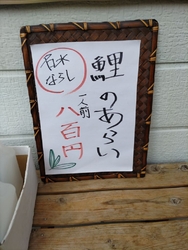 鯉のあらい
一人前
八百円
名水
ならし